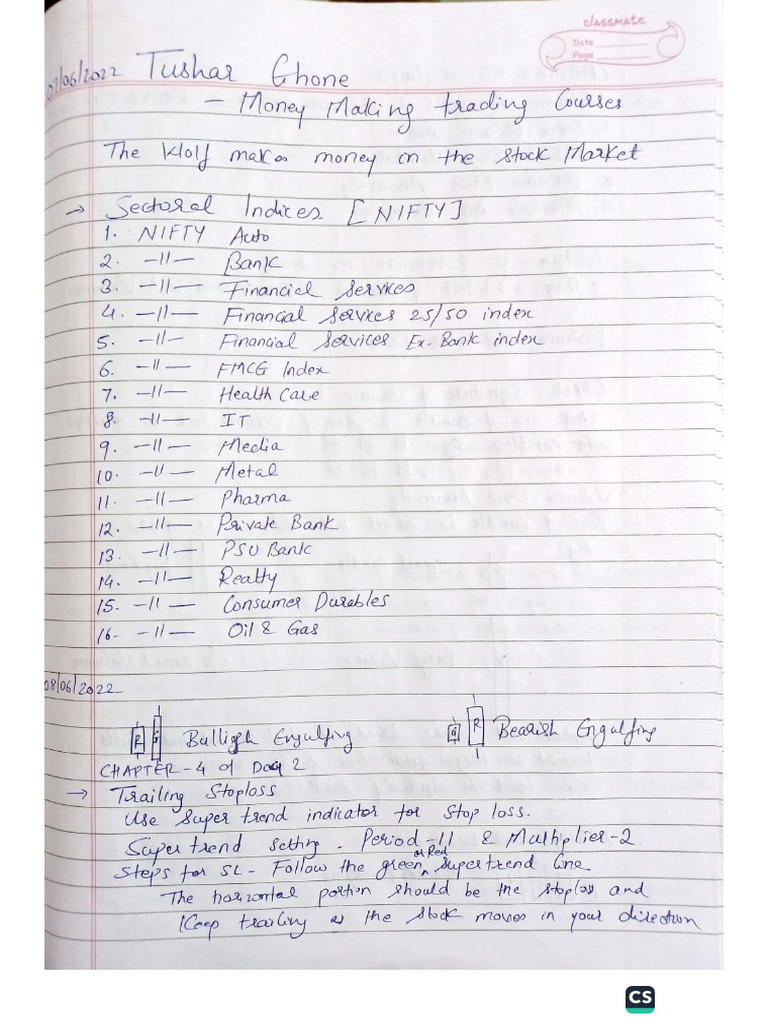 classmate
Date
Page
07/06/2022 Tushar Ghone
- Money Making trading Courses
The Wolf makes money in the Stock Market
→ Sectoral Indices [NIFTY]
1. NIFTY Auto
2. -11- Bank
3. -11- Financial Services
4. -11- Financial Services 25/50 index
5. -11- Financial Services Ex-Bank index
6. -11- FMCG Index
7. -11- Health Care
8. -11- IT
9. -11- Media
10. -11- Metal
11. -11- Pharma
12. -11- Private Bank
13. -11- PSU Bank
14. -11- Realty
15. -11- Consumer Durables
16. -11- Oil & Gas
08/06/2022
R G Bulligh Engulfing G R Bearish Engulfing
CHAPTER-4 of Day 2
→ Trailing Stoploss
Use Super trend indicator for Stop loss.
Super trend setting - Period-11 & Multiplier-2
Steps for SL - Follow the green or Red supertrend line
The horizontal portion should be the stoploss and
Keep trailing as the stock moves in your direction
CS